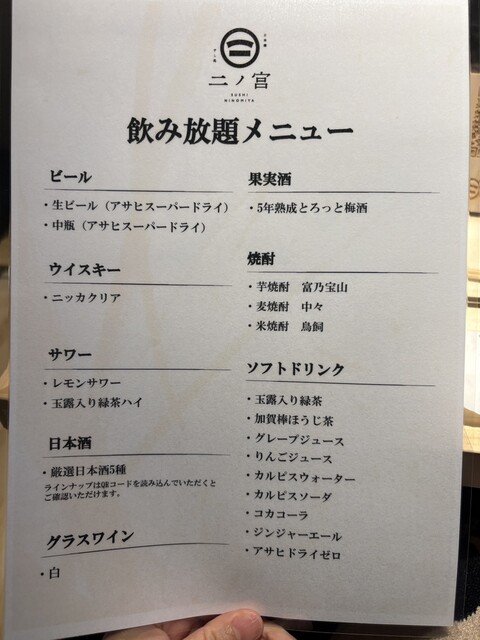 二ノ宮
SUSHI
NINOMIYA
飲み放題メニュー
ビール
・生ビール（アサヒスーパードライ）
・中瓶（アサヒスーパードライ）
ウイスキー
・ニッカクリア
サワー
・レモンサワー
・玉露入り緑茶ハイ
日本酒
・厳選日本酒5種
ラインナップはQRコードを読み込んでいただくと
ご確認いただけます。
グラスワイン
・白
果実酒
・5年熟成とろっと梅酒
焼酎
・芋焼酎　富乃宝山
・麦焼酎　中々
・米焼酎　鳥飼
ソフトドリンク
・玉露入り緑茶
・加賀棒ほうじ茶
・グレープジュース
・りんごジュース
・カルピスウォーター
・カルピスソーダ
・コカコーラ
・ジンジャーエール
・アサヒドライゼロ